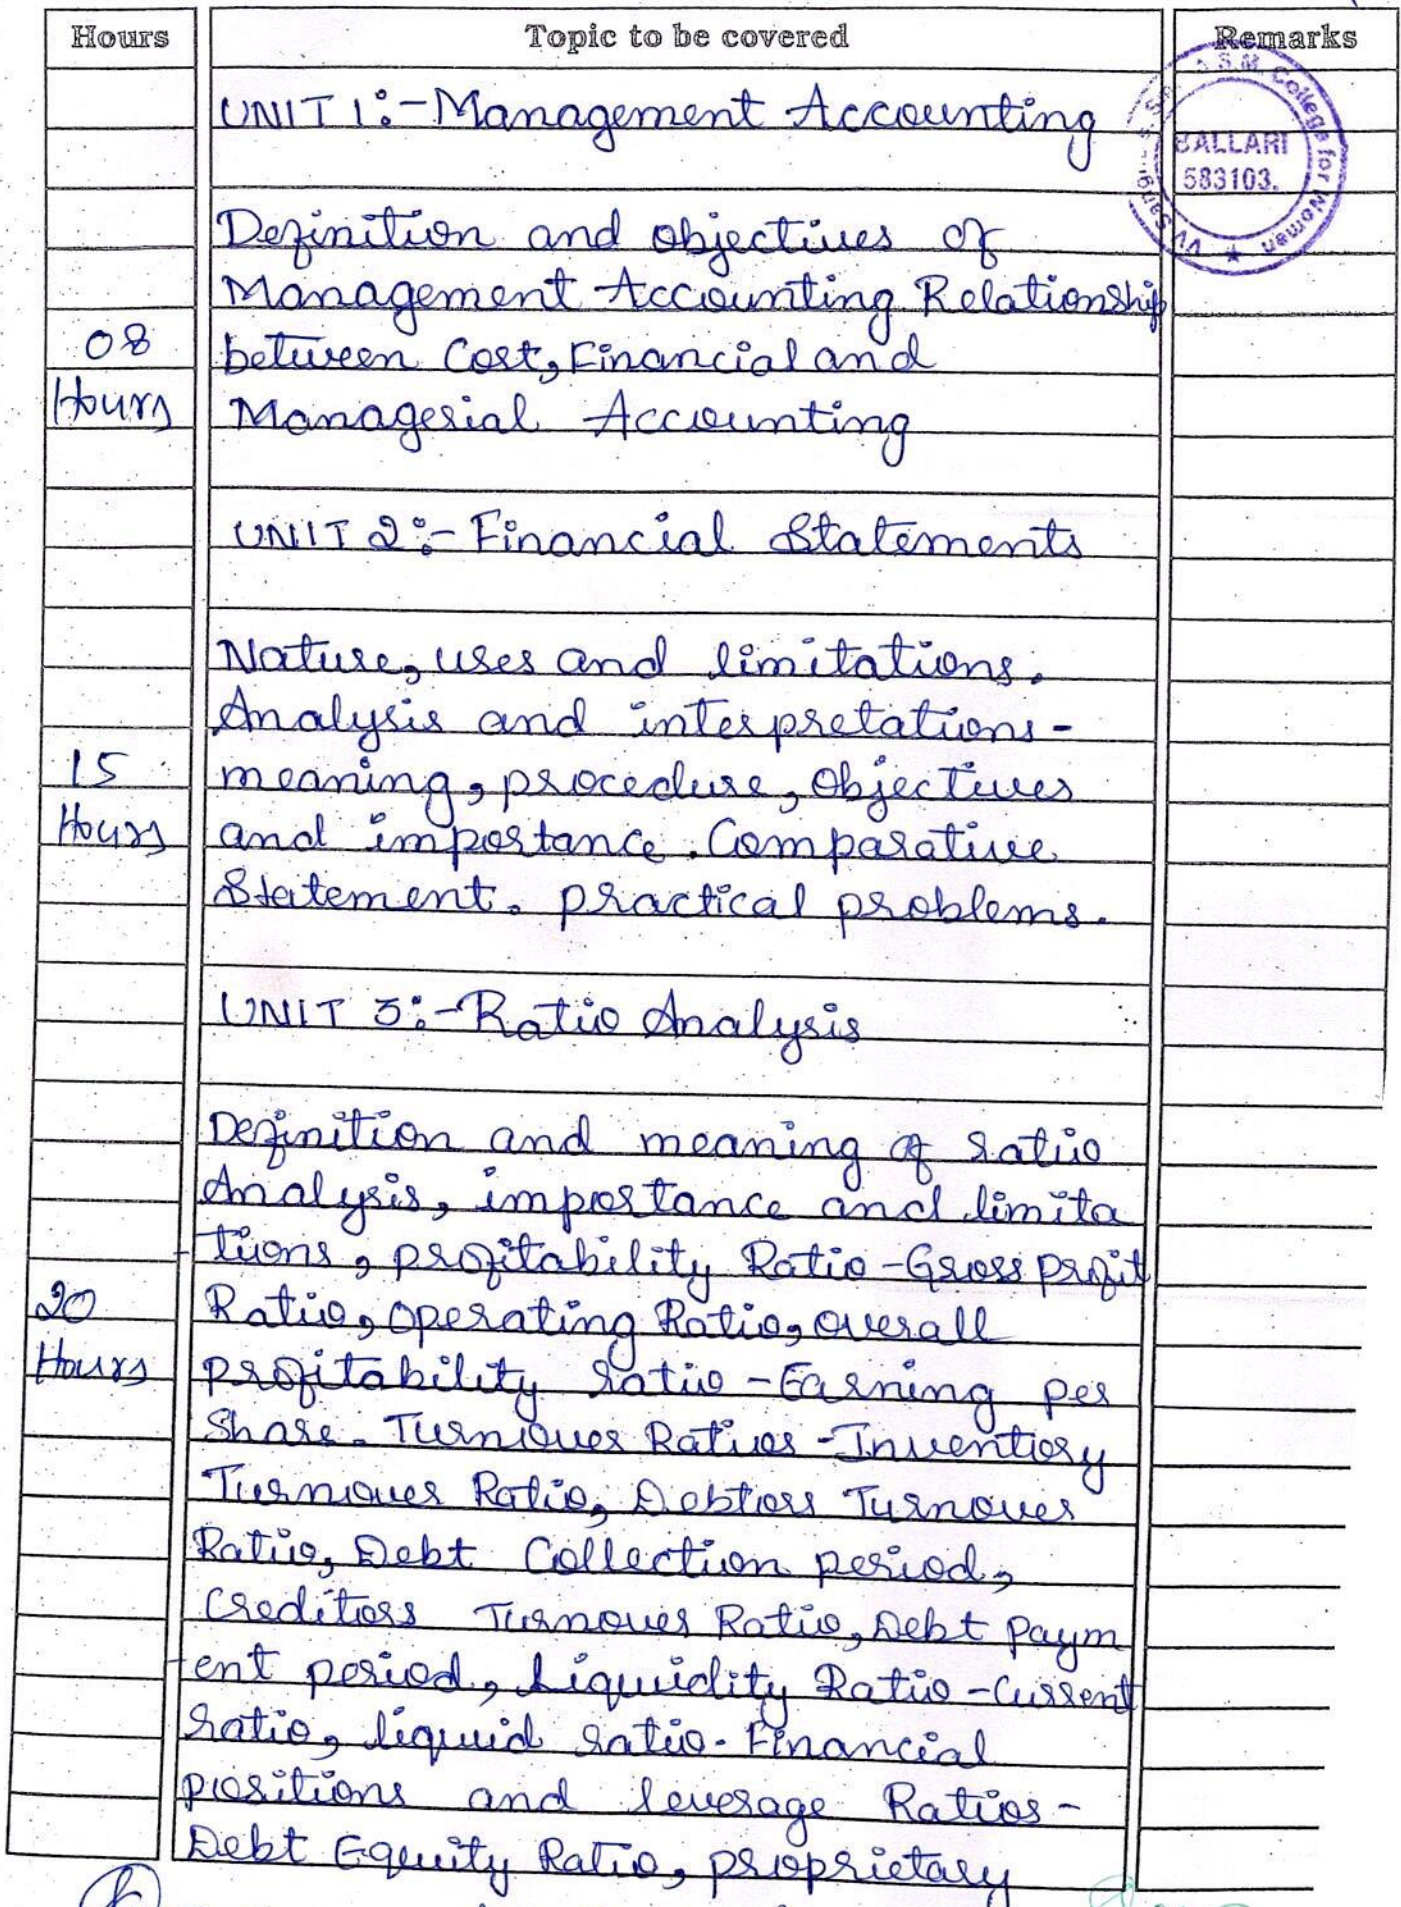 Hours Topic to be covered Remarks
UNIT 1:- Management Accounting
S.M. College for Woman
BALLARI
583103.
Definition and objectives of
Management Accounting Relationship
08 between Cost, Financial and
Hours Managerial Accounting
UNIT 2:- Financial Statements
Nature, uses and limitations.
Analysis and interpretations-
15 meaning, procedure, Objectives
Hours and importance. Comparative
Statement. practical problems.
UNIT 3:- Ratio Analysis
Definition and meaning of ratio
Analysis, importance and limita
-tions, profitability Ratio - Gross profit
20 Ratio, Operating Ratio, overall
Hours profitability ratio - Earning per
Share. Turnover Ratios - Inventory
Turnover Ratio, Debtors Turnover
Ratio, Debt Collection period,
Creditors Turnover Ratio, Debt Paym
-ent period, Liquidity Ratio - Current
ratio, liquid ratio. Financial
positions and leverage Ratios -
Debt Equity Ratio, proprietary